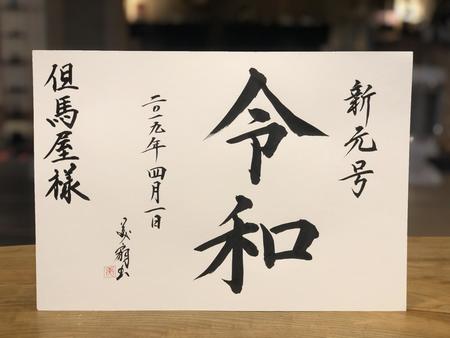 新元号
令和
二〇一九年四月一日
但馬屋様